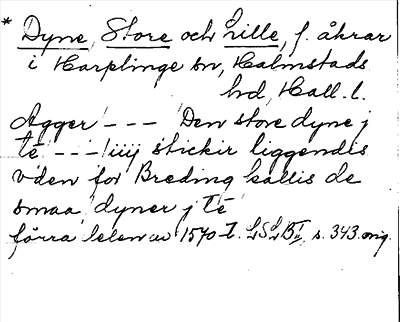 * Dyne, Store och Lille, f. åkrar
i Harplinge sn, Halmstads
hd, Hall. l.
Agger! --- Den store dyne j
te --- iiij stickir liggendis
vden for Breding kallis de
smaa dyner j te
förra delen av 1570-t. LSLB I, s. 343. orig.